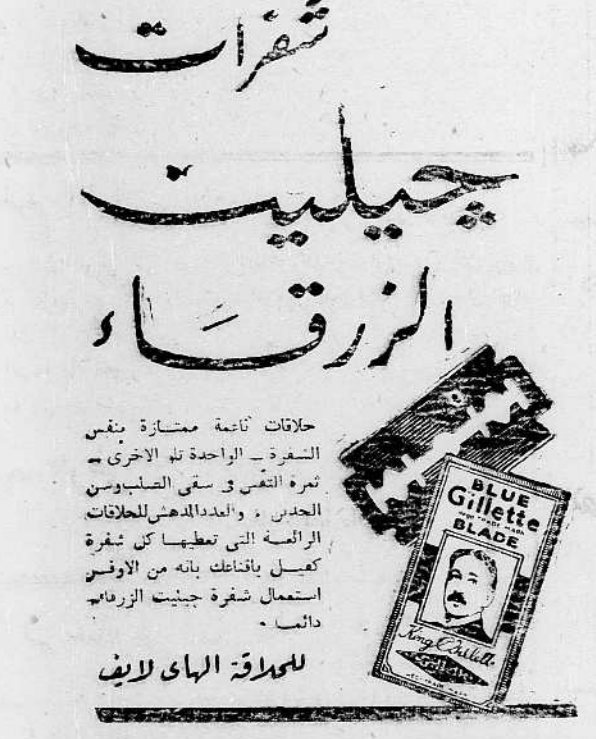 شفرات
چيليت
الزرقاء
حلاقات ناعمة ممتازة بنفس
الشفرة ــ الواحدة تلو الاخرى ــ
ثمرة التفنن فى سقى الصلب وسن
الحدين ، والعدد المدهش للحلاقات
الرائعة التى تعطيها كل شفرة
كفيل باقناعك بانه من الاوفر
استعمال شفرة جيليت الزرقاء
دائما ٠
للحلاقة الهاى لايف
BLUE
Gillette
BLADE
King Gillette